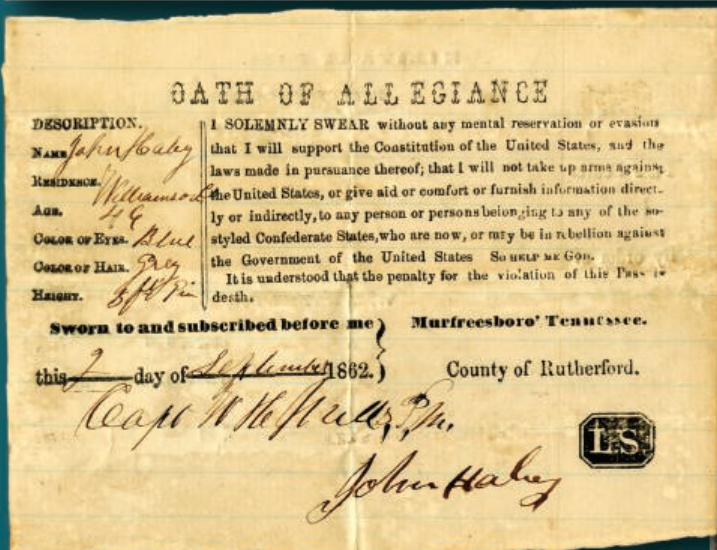 OATH OF ALLEGIANCE
DESCRIPTION.
NAME John Haley
RESIDENCE. Williamson Co
AGE. 46
COLOR OF EYES. Blue
COLOR OF HAIR. Grey
HEIGHT. 5 ft in
I SOLEMNLY SWEAR without any mental reservation or evasion
that I will support the Constitution of the United States, and the
laws made in pursuance thereof; that I will not take up arms against
the United States, or give aid or comfort or furnish information direct-
ly or indirectly, to any person or persons belonging to any of the so-
styled Confederate States, who are now, or may be in rebellion against
the Government of the United States SO HELP ME GOD.
It is understood that the penalty for the violation of this Pass is
death.
Sworn to and subscribed before me
this 2 day of September 1862.
Murfreesboro' Tennessee.
County of Rutherford.
Capt W H P.M.
L S
John Haley